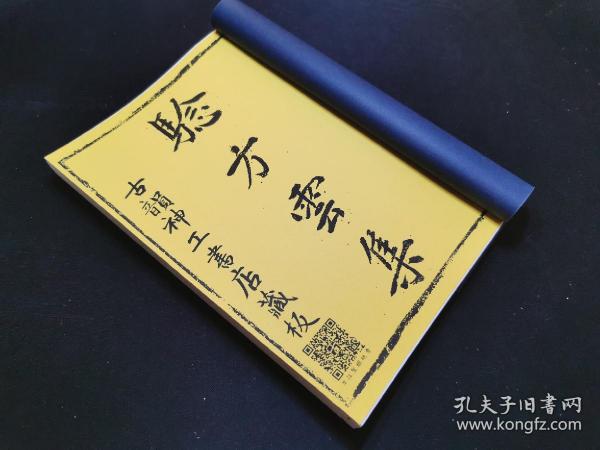 騐方雲集
古韻神工書店藏板
孔夫子旧书网
www.kongfz.com